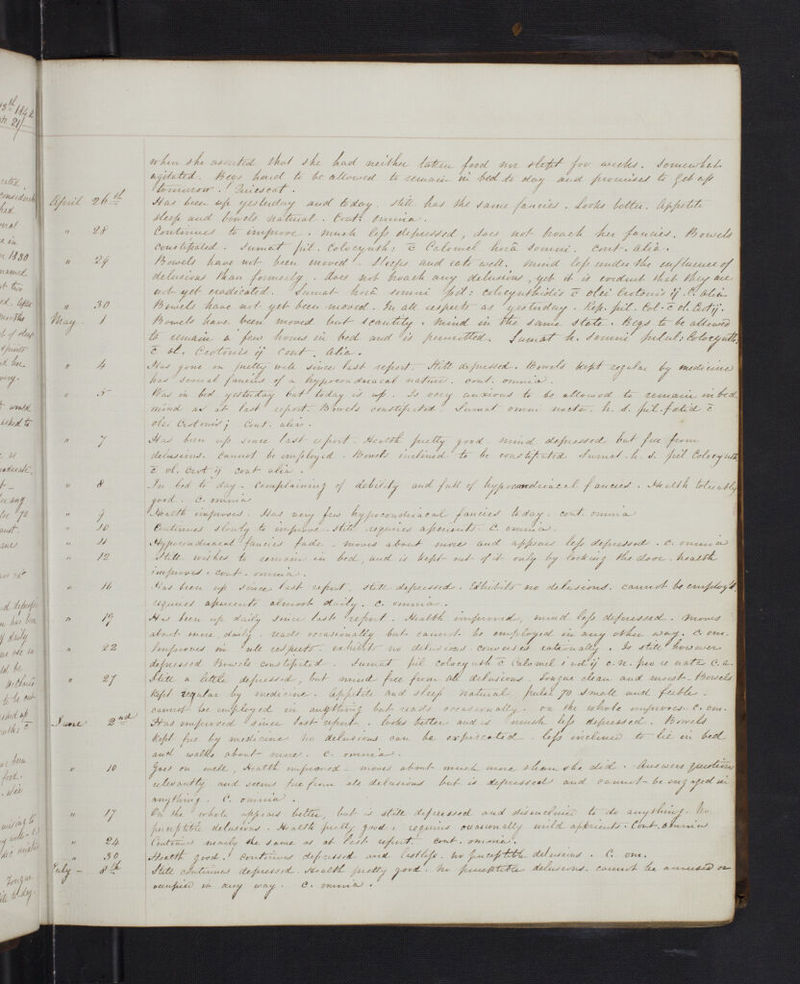 when she asserted that she had neither taken food nor slept for weeks. Somewhat
agitated. Begs hard to be allowed to remain in bed to day and promises to get up
tomorrow. Quiescat.
April 26th Has been up yesterday and to day. still has the same fancies. Looks better. Appetite
sleep and bowels natural. Cont. omnia.
" 28 Continues to improve. much less depressed, does not broach her fancies. Bowels
constipated. Sumat pil. Colocynth: c̄ Calomel horâ somni. cont. alia.
" 29 Bowels have not been moved. Sleeps and eats well. mind less under the influence of
delusions than formerly. does not broach any delusions, yet it is evident that they are
not yet eradicated. Sumat horâ somni pil: colocynthidis c̄ olei Crotonis ij C. alia.
" 30 Bowels have not yet been moved. In all respects as yesterday. Rep. pil. Col. c̄ ol. Crot ij.
May 1 Bowels have been moved but scantily. mind in the same state. Begs to be allowed
to remain a few hours in bed and is permitted. Sumat h. somni pilul: Colocynth:
c̄ ol. Crotonis ij Cont. alia.
" 4 Has gone on pretty well since last report. Still depressed. Bowels kept regular by medicine
has several fancies of a hypocondriacal nature. cont. omnia.
" 5 Was in bed yesterday but to day is up. Is very anxious to be allowed to remain in bed
mind as at last report. Bowels constipated. Sumat omni nocte h. s. pil. fœtid c̄
olei Crotonis j Cont. alia.
" 7 Has been up since last report. Health pretty good. mind depressed but free from
delusions. Cannot be employed. Bowels inclined to be constipated Sumat h. s. pil Colocynth
c̄ ol. Crot ij cont alia.
" 8 In bed to day. Complaining of debility and full of hypocondriacal fancies. Health tolerably
good. C. omnia
" 9 Health improves. Has very few hypocondriacal fancies to day. cont. omnia
" 10 Continues slowly to improve. still requires aperients C. omnia.
" 11 Hypocondriacal fancies fade. moves about more and appears less depressed. C. omnia
" 12 Still wishes to remain in bed, and is kept out of it only by locking the door. health
improves. cont. omnia.
" 16 Has been up since last report. still depressed. Exhibits no delusions. cannot be employ'd.
requires aperients almost daily. C. omnia.
" 19 Has been up daily since last report. Health improved, mind less depressed. moves
about more daily. reads occasionally but cannot be employed in any other way. C. om.
" 22 Improves in all respects. exhibits no delusions converses rationally. Is still however
depressed Bowels constipated. Sumat pil colocynth c̄ Calomel
" 27 Still a little depressed, but mind free from all delusions. Tongue clean and moist. Bowels
kept regular by medicine. Appetite and sleep natural, pulse 70 small and feeble.
cannot be employed in anything but reads occasionally. on the whole improves. C. om.
June 2nd Has improved since last report. looks better and is much less depressed. Bowels
kept free by medicine no delusions can be less inclined to lie in bed
and walks about more. C. omnia.
" 10 Goes on well, Health improved. moves about much more than she did. Answers questions
relevantly and seems free from all delusions but is depressed and cannot be engaged in
anything. C. omnia.
" 17 On the whole appears better, but is still depressed and disinclined to do anything. No
perceptible delusions. Health pretty good, requires occasionally mild aperients. Cont. omnia
" 24 Continues nearly the same as at last report. cont. omnia.
" 30 Health good. Continues depressed and listless. no perceptible delusions. C. om.
July 8th Still continues depressed. Health pretty good. no perceptible delusions. cannot be amused or
occupied in any way. C. omnia.